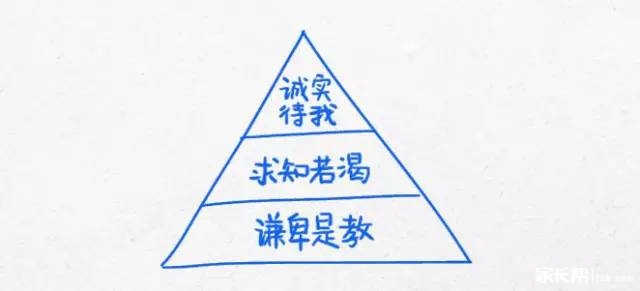 诚实
待我
求知若渴
谦卑是教
家长帮 jzb.com